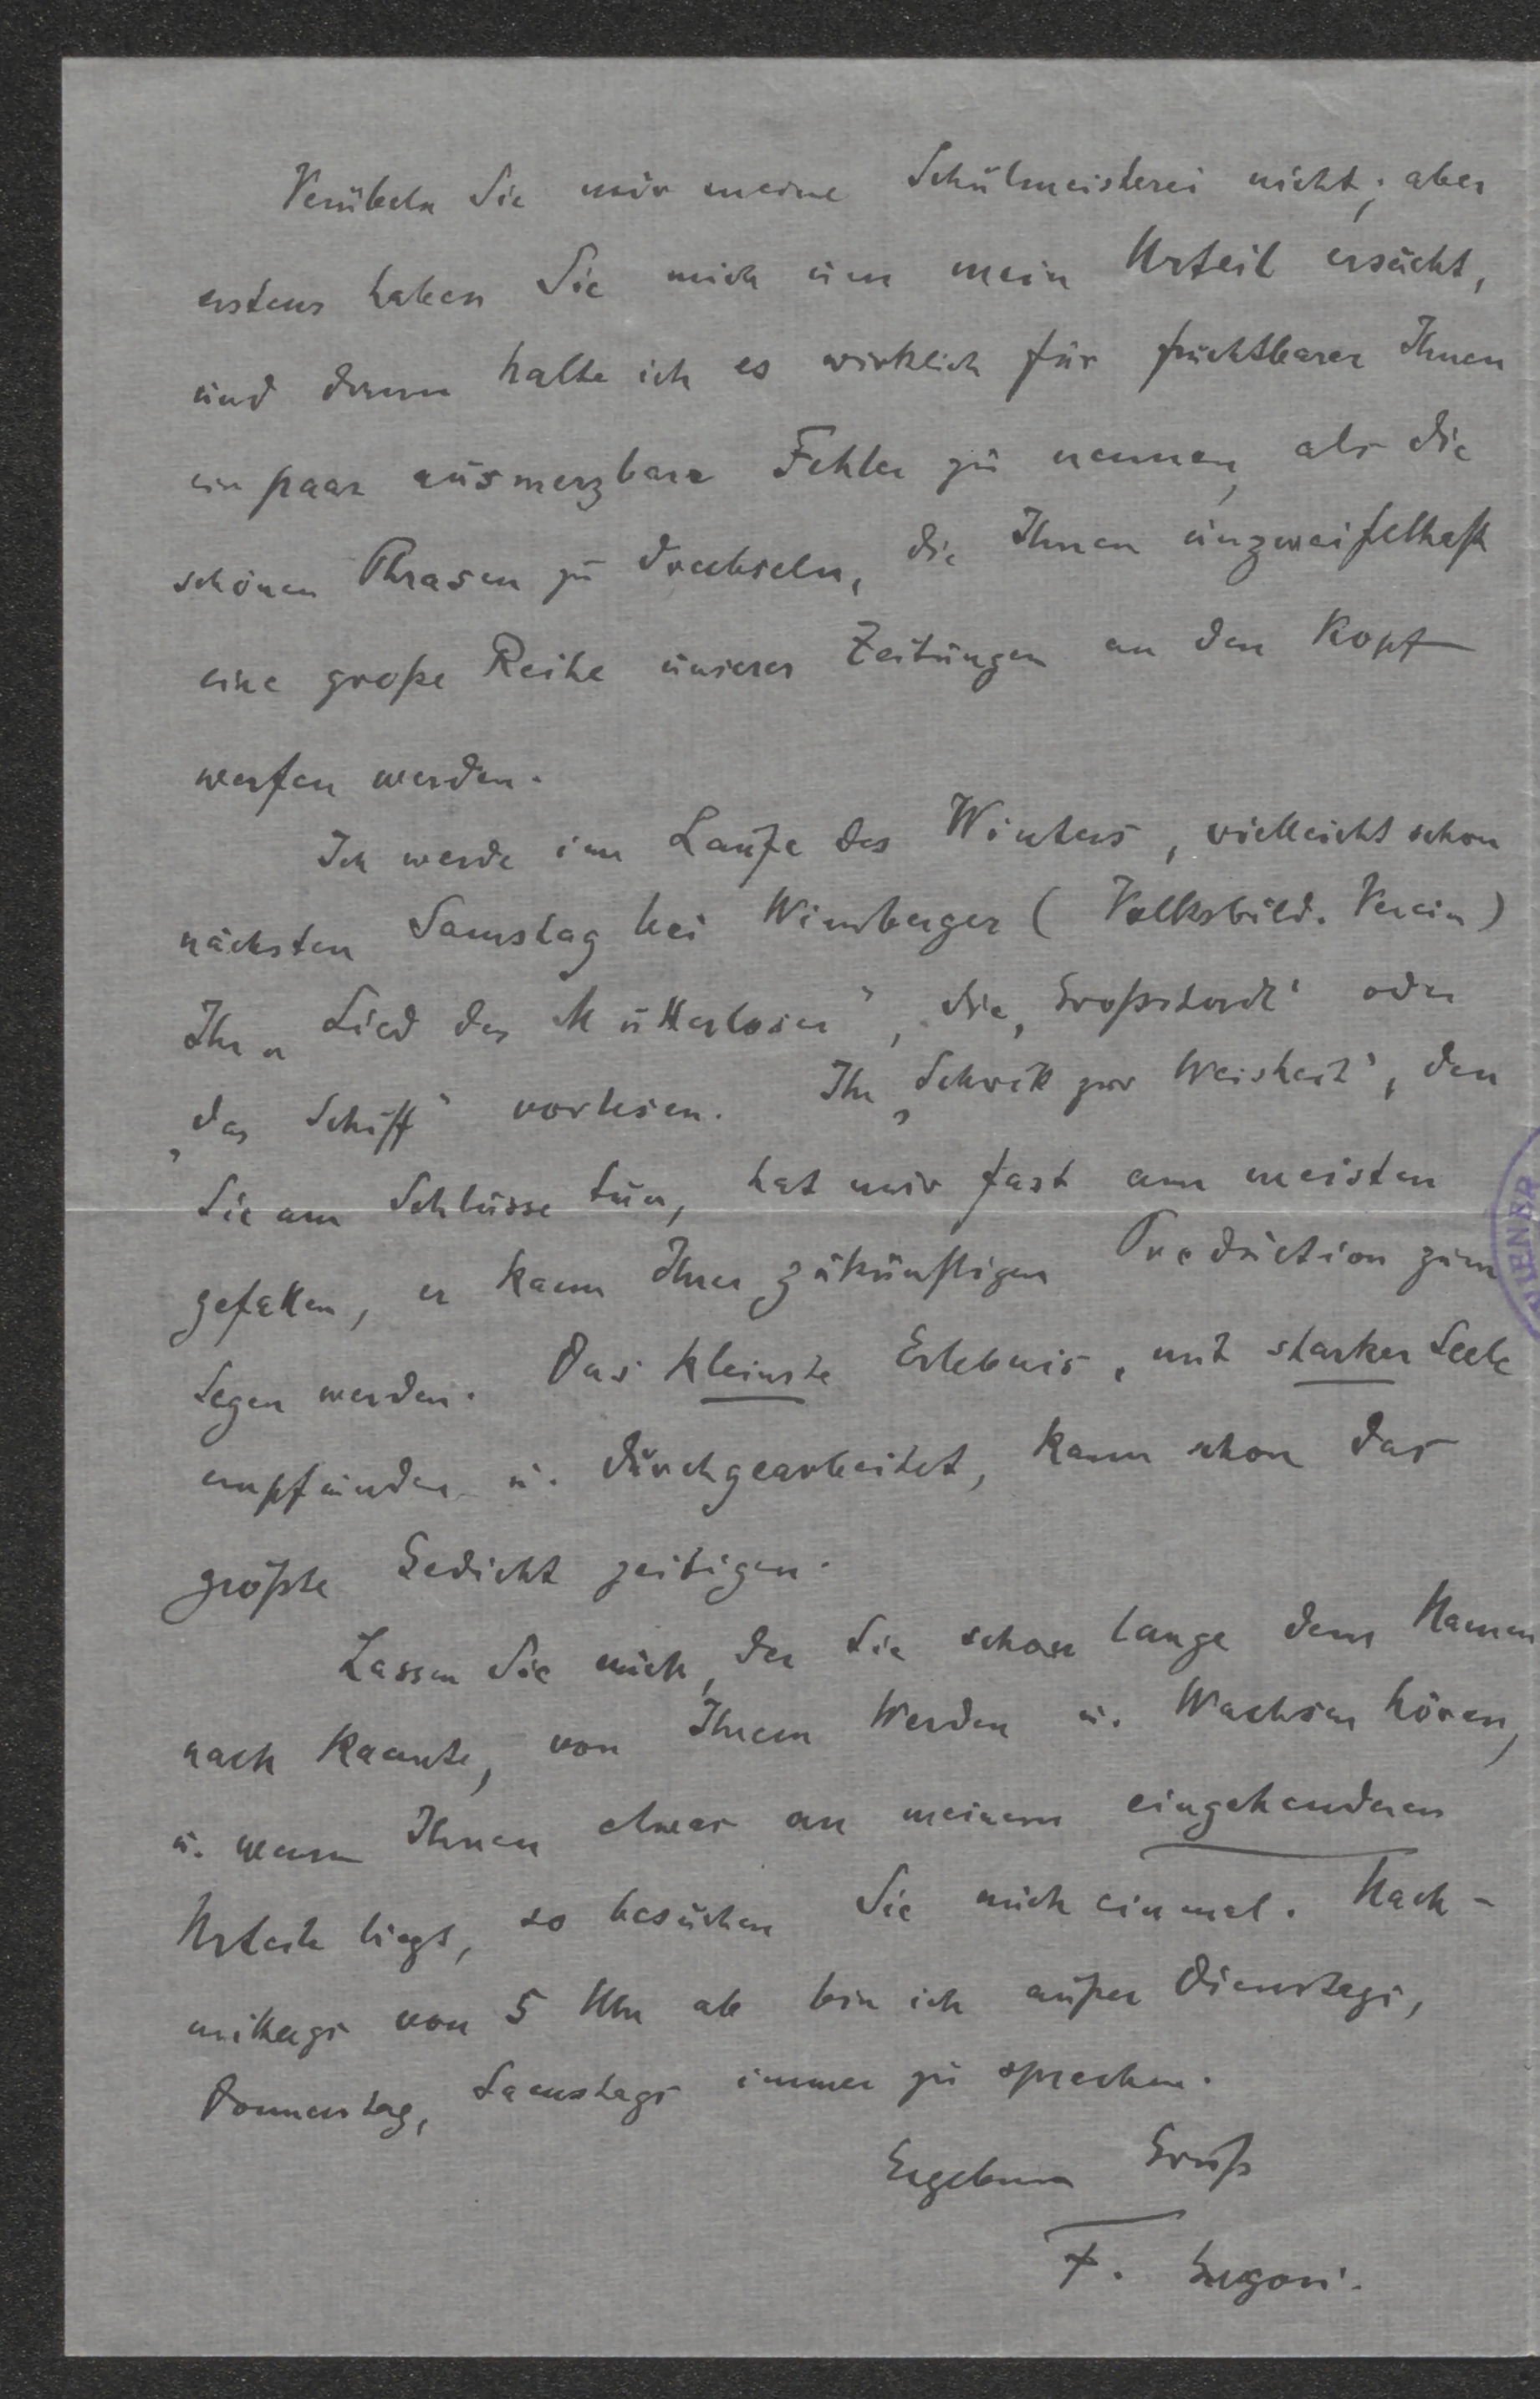 Verübeln Sie mir meine Schulmeisterei nicht; aber
erstens haben Sie mich um mein Urteil ersucht,
und dann halte ich es wirklich für fruchtbarer Ihnen
ein paar ausmerzbare Fehler zu nennen, als die
schönen Phrasen zu drechseln, die Ihnen unzweifelhaft
eine große Reihe unserer Zeitungen an den Kopf
werfen werden.
Ich werde im Laufe des Winters, vielleicht schon
nächsten Samstag bei Wimberger (Volksbild. Verein)
Ihr „Lied des Mutterlosen", die „Großstadt" oder
„das Schiff" vorlesen. Ihr „Schritt zur Weisheit", den
Sie am Schlusse tun, hat mir fast am meisten
gefallen, er kann Ihrer zukünftigen Production zum
Segen werden. Das kleinste Erlebnis, mit starker Seele
empfunden u. durchgearbeitet, kann schon das
größte Gedicht zeitigen.
Lassen Sie mich, der Sie schon lange dem Namen
nach kannte, von Ihrem Werden u. Wachsen hören,
u. wenn Ihnen etwas an meinem eingehenderen
Urteile liegt, so besuchen Sie mich einmal. Nach-
mittags von 5 Uhr ab bin ich außer Dienstags,
Donnerstag, Samstags immer zu sprechen.
Ergebnen Gruß
F. Gregori.
WIENER